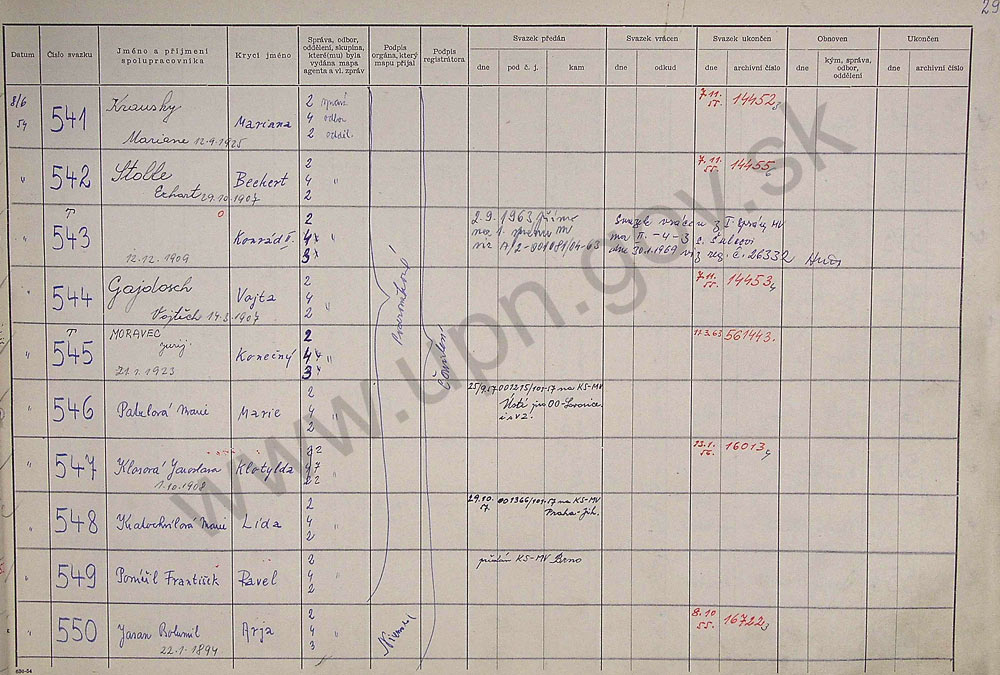 29
Datum
Číslo svazku
Jméno a příjmení
spolupracovníka
Krycí jméno
Správa, odbor,
oddělení, skupina,
které(mu) byla
vydána mapa
agenta a vl. zpráv
Podpis
orgána, který
mapu přijal
Podpis
registrátora
Svazek předán
dne
pod č. j.
kam
Svazek vrácen
dne
odkud
Svazek ukončen
dne
archivní číslo
Obnoven
dne
kým, správa,
odbor,
oddělení
Ukončen
dne
archivní číslo
8/6
54
541
Krausky
Mariane 12.9.1925
Mariana
2 správa
4 odbor
2 odděl.
7.11.
55.
14452
3
"
542
Stolle
Erhart 29.10.1907
Beckert
2
4 "
2
7.11.
55.
14455
3
"
543
12.12.1909
Konrád II.
2
4x "
3x
2.9.1963
na 1. správu MV
viz A/2-001081/04-63
Svazek vrácen z I. správy MV
na II.-4-3 s.
dne 30.1.1969 viz reg. č. 26332
"
544
Gajdosch
Vojtěch 14.3.1907
Vojta
2
4 "
2
7.11.
55.
14453
4
"
545
MORAVEC
Jurij
21.1.1923
Konečný
2
4x "
3x
11.3.63
561443.
"
546
Marie
Marie
2
4 "
2
25/9.57 001215/101-57 na KS-MV
Ústí pro OO-Lovosice
"
547
Klasová Jaroslava
1.10.1908
Klotylda
2
2
13.1.
56.
16013
4
"
548
Kratochvilová Marie
Lída
2
4 "
2
29.10.
57.
001366/101-57 na KS-MV
Praha-jih.
"
549
František
Ravel
2
4 "
2
předán KS-MV Brno
"
550
Jaran Bohumil
22.1.1894
Arja
2
4 "
3
8.10
55.
16722
3
636-54
www.upn.gov.sk